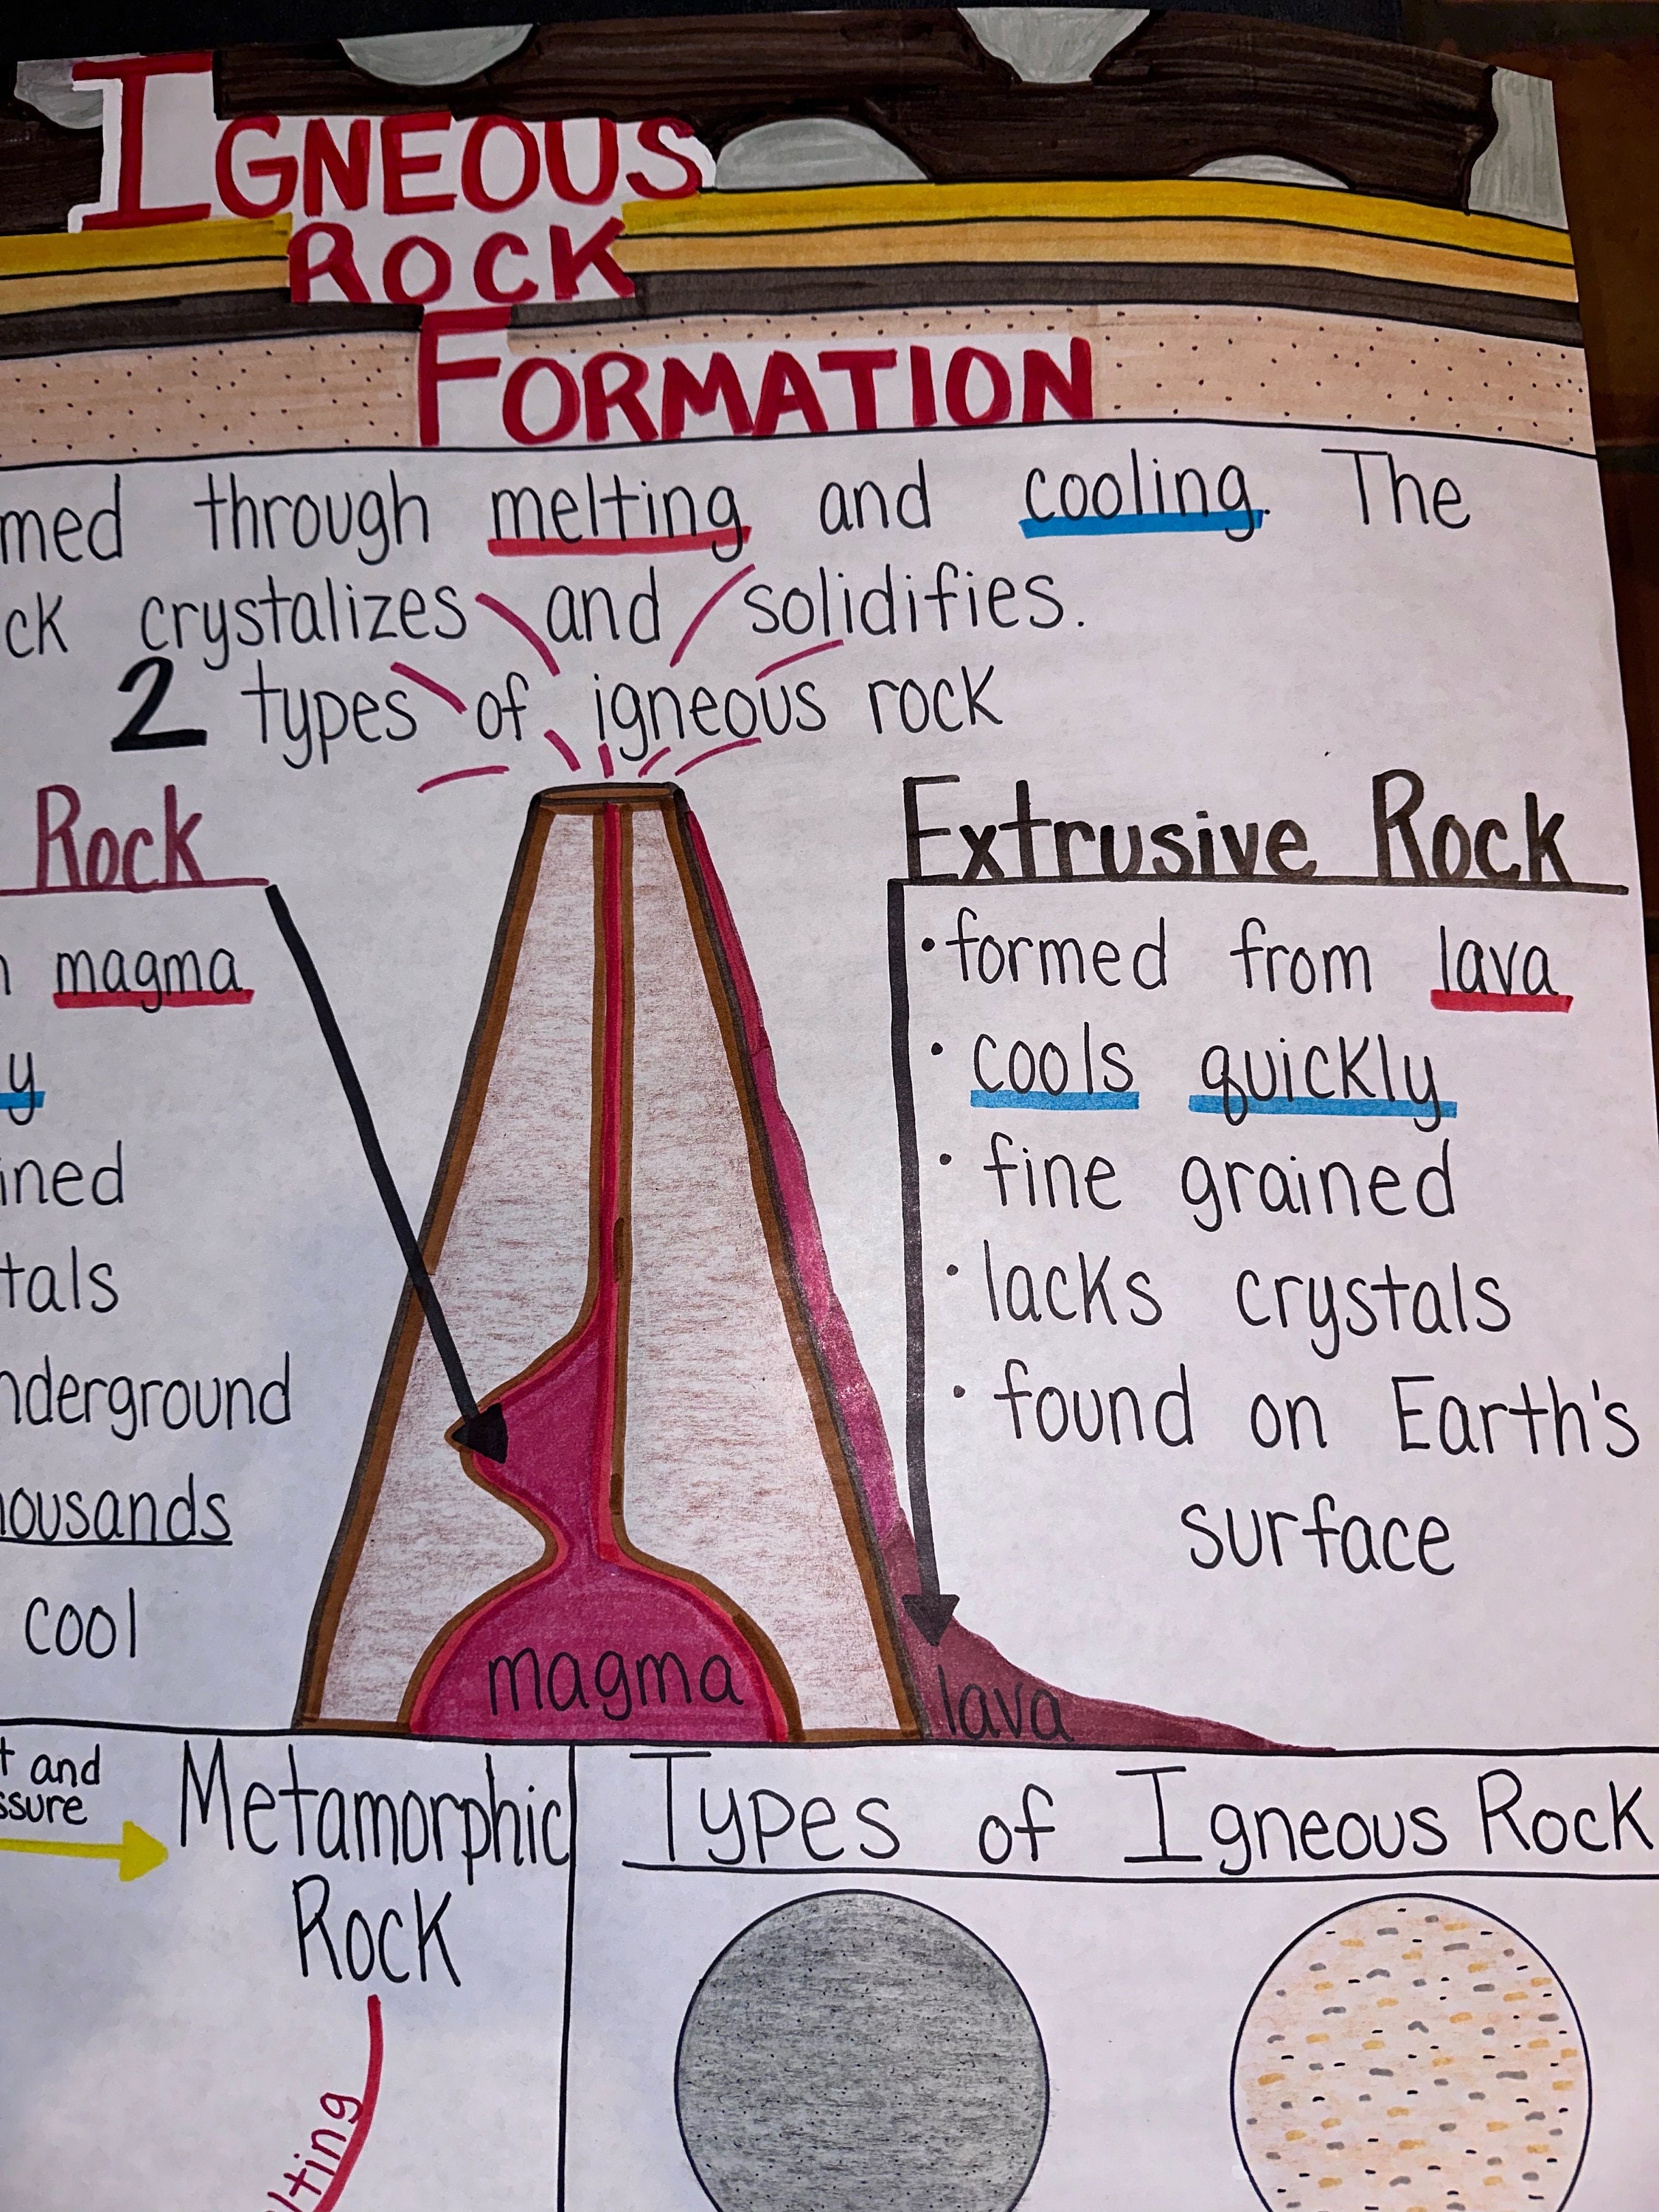 IGNEOUS
ROCK
FORMATION
med through melting and cooling. The
ck crystalizes and solidifies.
2 types of igneous rock
Rock
magma
y
ined
tals
nderground
housands
cool
Extrusive Rock
• formed from lava
• cools quickly
• fine grained
• lacks crystals
• found on Earth's
surface
magma
lava
t and
ssure
Metamorphic
Rock
lting
Types of Igneous Rock